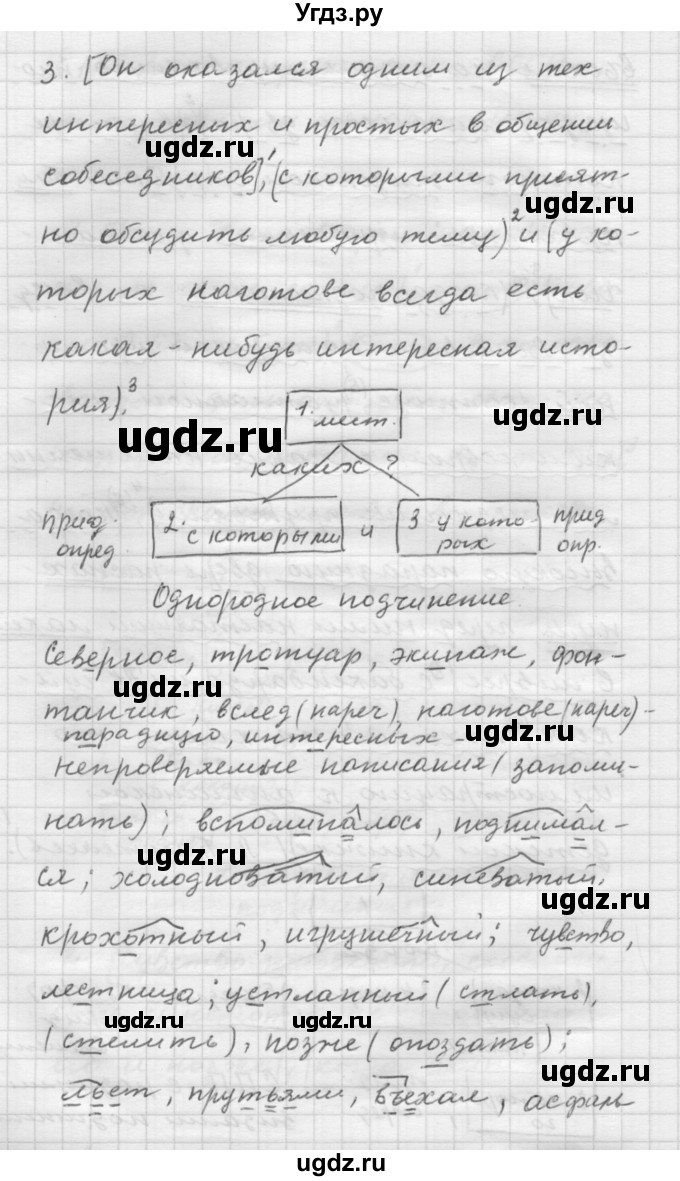 Угдз.ру
3. [Он оказался одним из тех
интересных и простых в общении
ugdz.ru ugdz.ru
собеседников]¹, (с которыми прият-
но обсудить любую тему)² и (у ко-
торых наготове всегда есть
какая-нибудь интересная исто-
рия).³
1. мест.
ugdz.ru ugdz.ru
каких?
прид. опред. 2. с которыми и 3 у кото-рых прид опр.
ugdz.ru ugdz.ru
Однородное подчинение.
Северное, тротуар, экипаж, фон-
ugdz.ru
танчик, вслед (нареч), наготове (нареч)-
парадную, интересных -
непроверяемые написания (запоми-
нать); вспоминалось, поднимал-
ugdz.ru ugdz.ru
ся; холодноватый, синеватый,
крохотный, игрушечный; чувство,
ugdz.ru
лестница; устланный (стлать),
ugdz.ru ugdz.ru
(стелить), позже (опоздать);
ugdz.ru
льёт, прутьями, въехал, асфаль
ugdz.ru